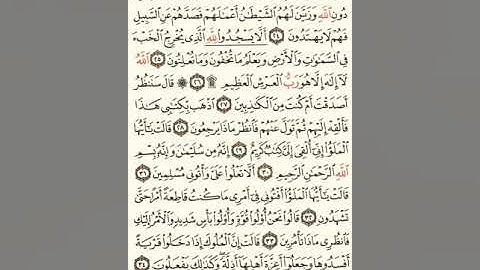 دُونِ ٱللَّهِ وَزَيَّنَ لَهُمُ ٱلشَّيْطَٰنُ أَعْمَٰلَهُمْ فَصَدَّهُمْ عَنِ ٱلسَّبِيلِ
فَهُمْ لَا يَهْتَدُونَ ٢٤ أَلَّا يَسْجُدُوا۟ لِلَّهِ ٱلَّذِى يُخْرِجُ ٱلْخَبْءَ
فِى ٱلسَّمَٰوَٰتِ وَٱلْأَرْضِ وَيَعْلَمُ مَا تُخْفُونَ وَمَا تُعْلِنُونَ ٢٥ ٱللَّهُ
لَآ إِلَٰهَ إِلَّا هُوَ رَبُّ ٱلْعَرْشِ ٱلْعَظِيمِ ۩ ٢٦ ۞ قَالَ سَنَنظُرُ
أَصَدَقْتَ أَمْ كُنتَ مِنَ ٱلْكَٰذِبِينَ ٢٧ ٱذْهَب بِّكِتَٰبِى هَٰذَا
فَأَلْقِهْ إِلَيْهِمْ ثُمَّ تَوَلَّ عَنْهُمْ فَٱنظُرْ مَاذَا يَرْجِعُونَ ٢٨ قَالَتْ يَٰٓأَيُّهَا
ٱلْمَلَؤُا۟ إِنِّىٓ أُلْقِىَ إِلَىَّ كِتَٰبٌ كَرِيمٌ ٢٩ إِنَّهُۥ مِن سُلَيْمَٰنَ وَإِنَّهُۥ بِسْمِ
ٱللَّهِ ٱلرَّحْمَٰنِ ٱلرَّحِيمِ ٣٠ أَلَّا تَعْلُوا۟ عَلَىَّ وَأْتُونِى مُسْلِمِينَ ٣١
قَالَتْ يَٰٓأَيُّهَا ٱلْمَلَؤُا۟ أَفْتُونِى فِىٓ أَمْرِى مَا كُنتُ قَاطِعَةً أَمْرًا حَتَّىٰ
تَشْهَدُونِ ٣٢ قَالُوا۟ نَحْنُ أُو۟لُوا۟ قُوَّةٍ وَأُو۟لُوا۟ بَأْسٍ شَدِيدٍ وَٱلْأَمْرُ إِلَيْكِ
فَٱنظُرِى مَاذَا تَأْمُرِينَ ٣٣ قَالَتْ إِنَّ ٱلْمُلُوكَ إِذَا دَخَلُوا۟ قَرْيَةً
أَفْسَدُوهَا وَجَعَلُوٓا۟ أَعِزَّةَ أَهْلِهَآ أَذِلَّةً وَكَذَٰلِكَ يَفْعَلُونَ ٣٤